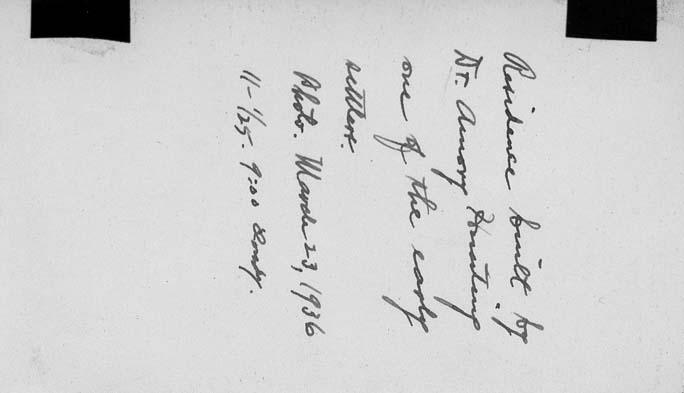 Residence built by
Dr. Amory Hunting
one of the early
settlers.
Photo. March 23, 1936
11- 1/25. 9:00